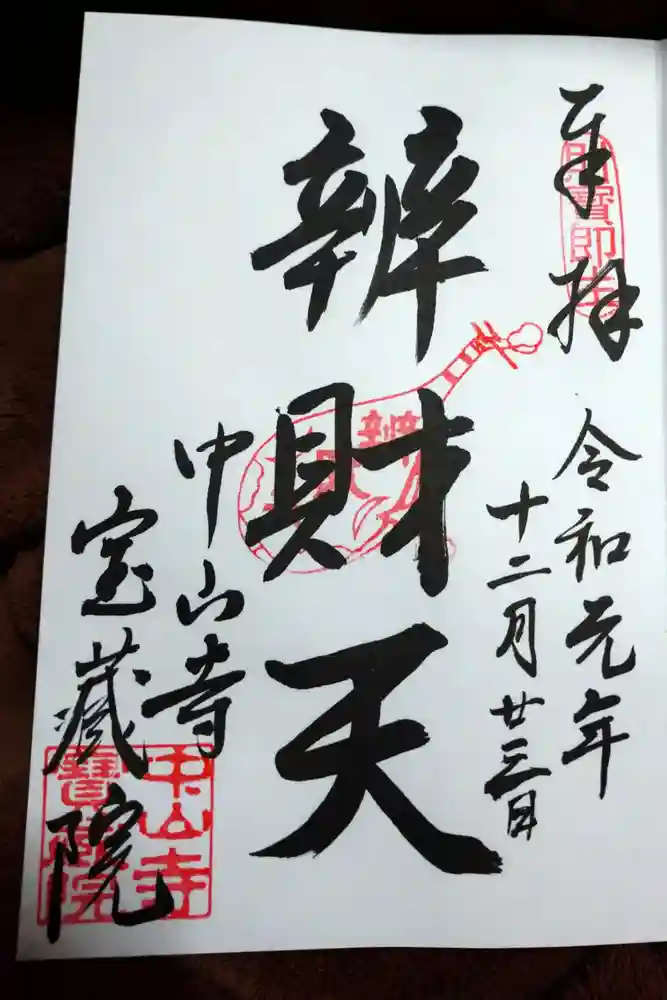 奉拝
令和元年
十二月廿三日
辨財天
中山寺
宝蔵院
中山寺
寶蔵院